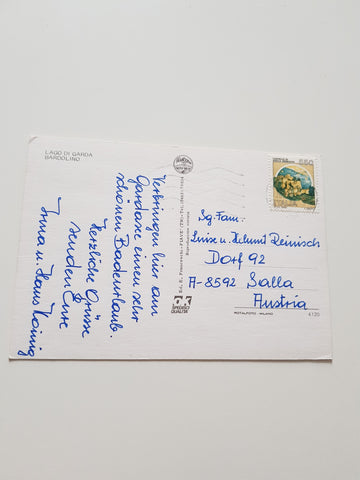 LAGO DI GARDA
BARDOLINO
Verbringen hier am
Gardasee einen sehr
schönen Badeurlaub.
Herzliche Grüsse
senden Eure
Irma u. Hans Kainig
SPEDISCI
QUALITÀ
650
Sg. Fam.
Luise u. Helmut Reinisch
Dorf 92
A-8592 Salla
Austria
ROTALFOTO - MILANO
4120